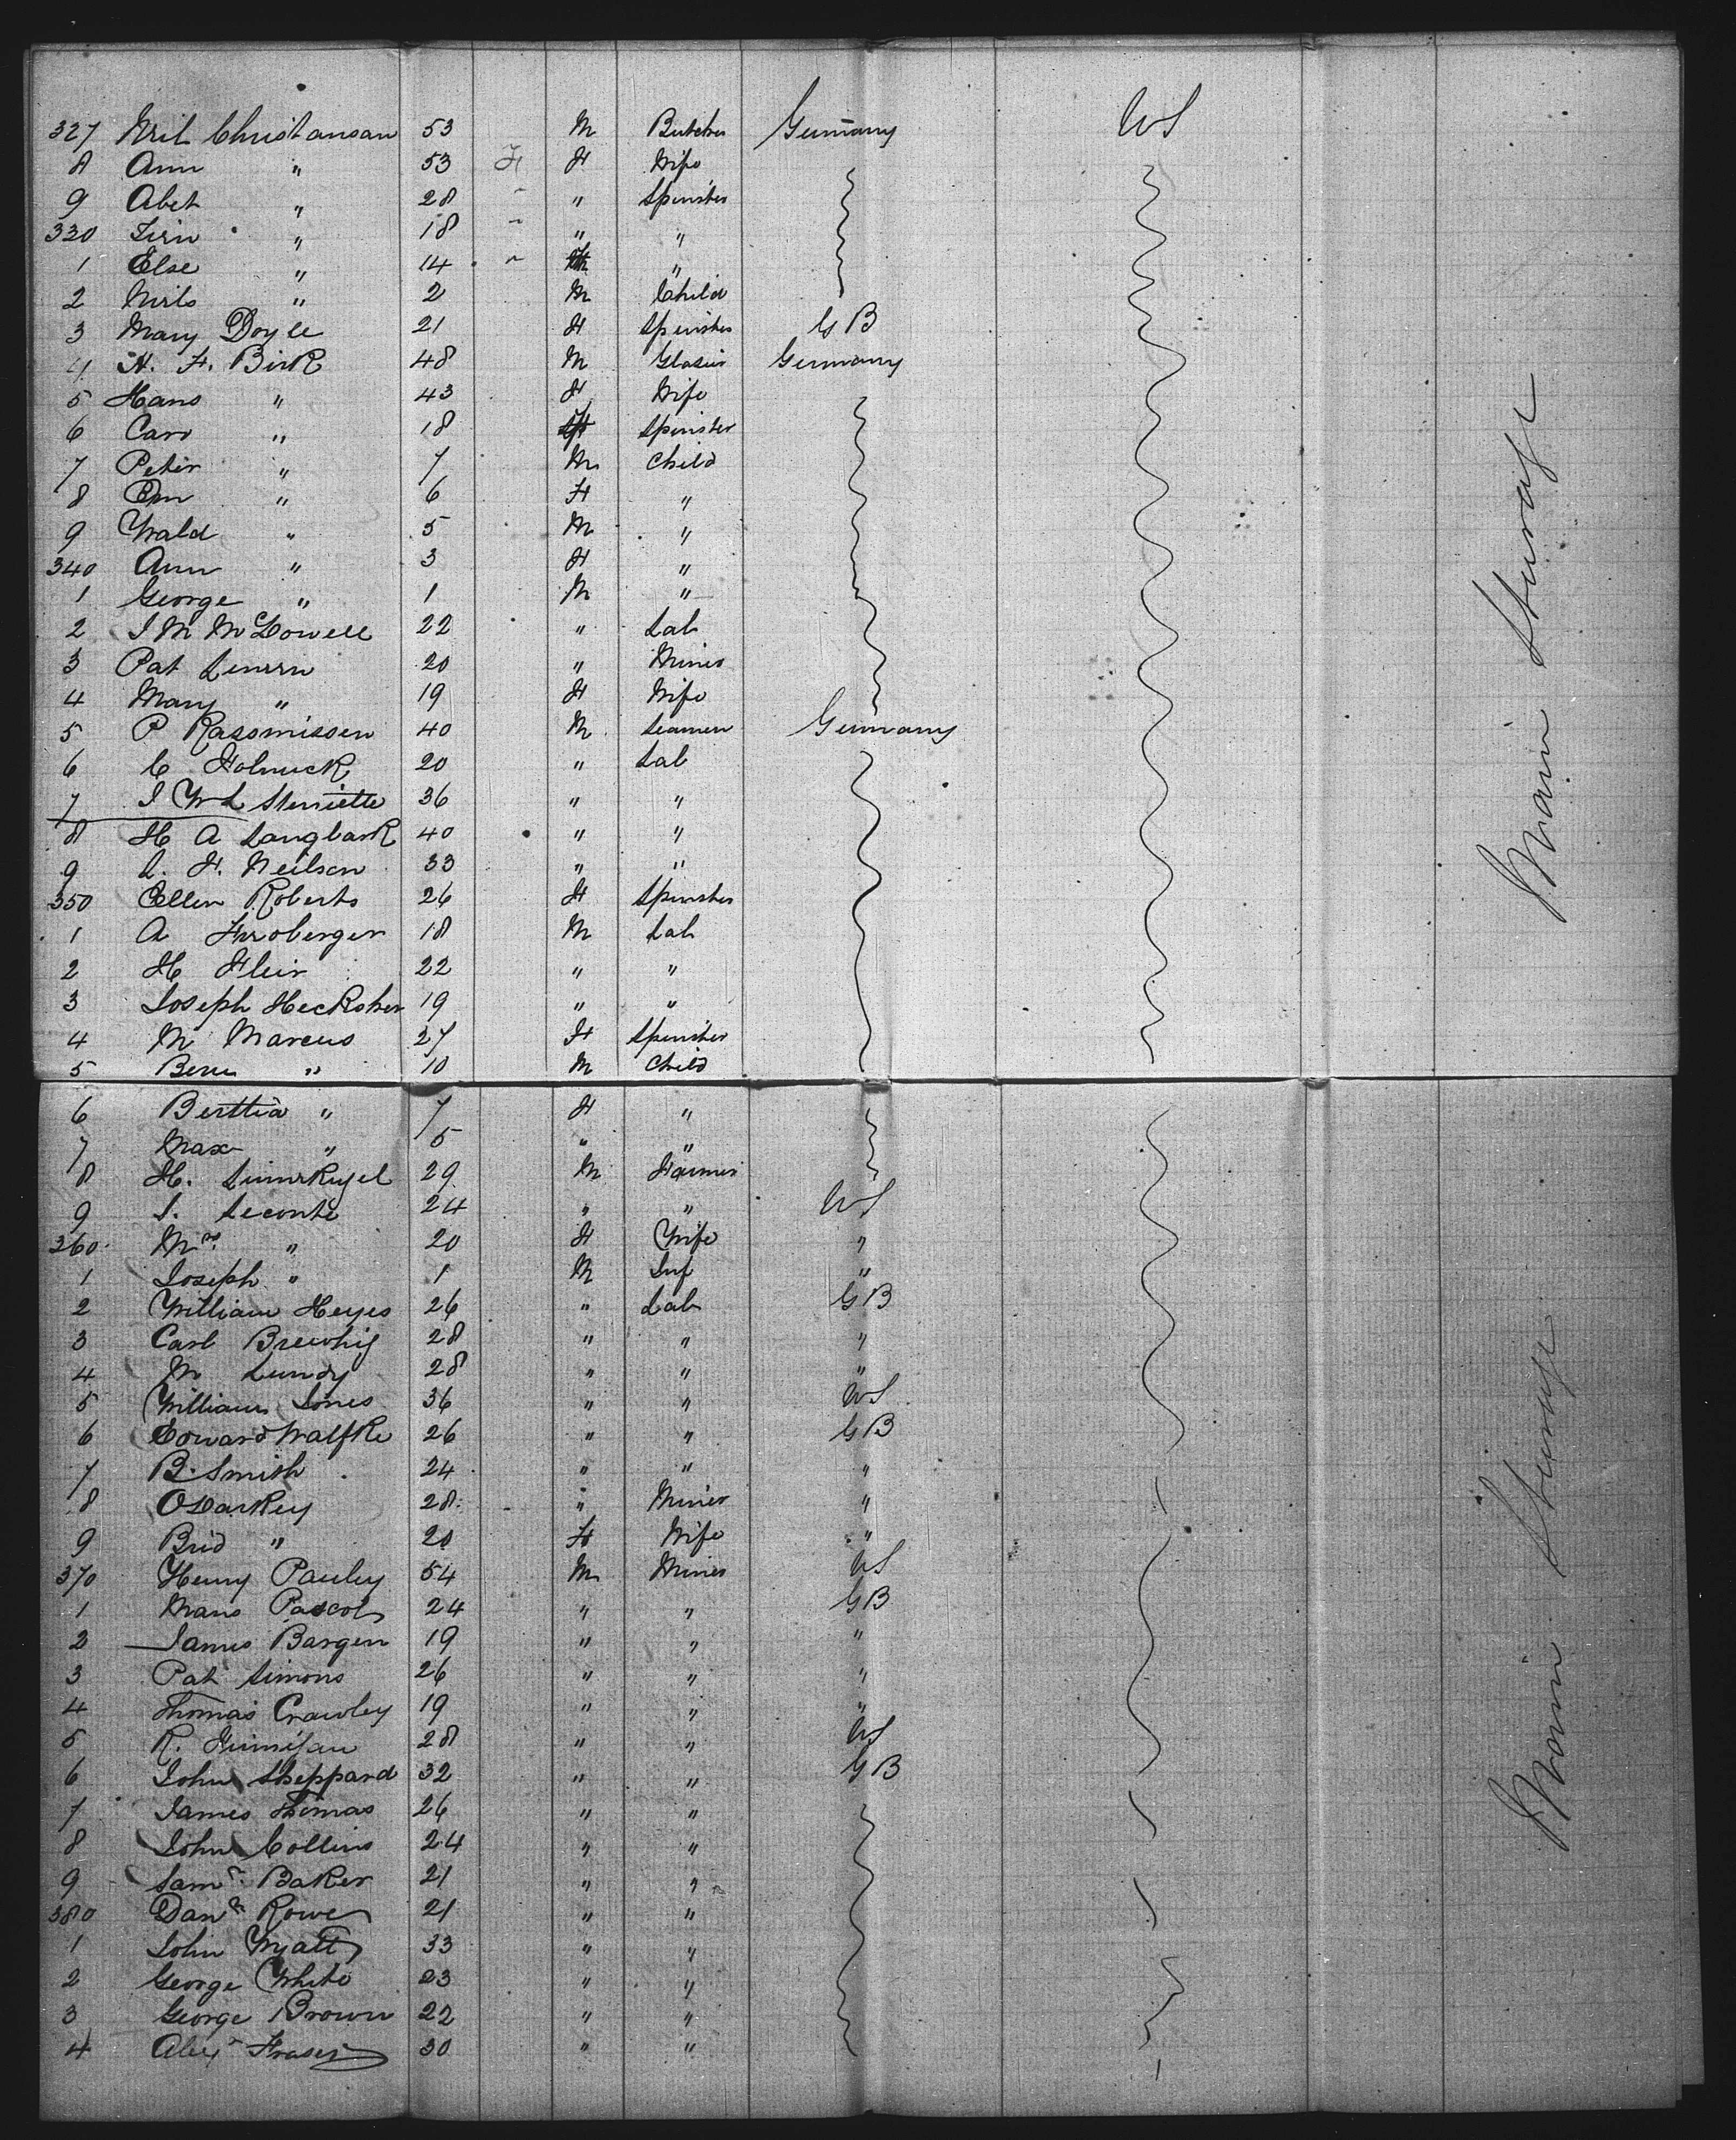 327 Nril Christansan 53 M Butcher Germany US
8 Ann " 53 F F Wife
9 Abet " 28 " " Spinster
330 " 18 " " "
1 Else " 14 " F "
2 Nirls " 2 M Child
3 Mary Doyle 21 F Spinster GB
4 H. F. Birk 48 M Glasier Germany
5 Hans " 43 F Wife
6 Caro " 18 F Spinster
7 Peter " 7 M Child
8 Em " 6 F "
9 Wald " 5 M "
340 Ann " 3 F "
1 George " 1 M "
2 J M McDowell 22 " Lab
3 Pat 20 " Miner
4 Mary " 19 F Wife
5 P Rassmissen 40 M Seamen Germany
6 C Holmuck 20 " Lab
7 J W L Henriette 36 " "
8 H A Langbark 40 " "
9 L. F. Neilson 33 " "
350 Ellen Roberts 26 F Spinster
1 A Furoberger 18 M Lab
2 H Fleir 22 " "
3 Joseph Hecksher 19 " "
4 M Marcus 27 F Spinster
5 Bern " 10 M Child
6 Berttia " 7 F "
7 Max " 5 " "
8 H. 29 M Farmer
9 S. Leconte 24 " " US
360 Mrs. " 20 F Wife "
1 Joseph " 1 M Inf "
2 William Heyes 26 " Lab GB
3 Carl Brewhig 28 " " "
4 M Lundy 28 " " "
5 William Jones 36 " " US
6 Edward Walfke 26 " " GB
7 B. Smith 24 " " "
8 O Darkey 28 " Miner "
9 Brid " 20 F Wife "
370 Henry Pauley 54 M Miner US
1 Mans Pascol 24 " " GB
2 James Bargen 19 " " "
3 Pat Simons 26 " " "
4 Thomas Crawley 19 " " "
5 R. Finnigan 28 " " US
6 John Sheppard 32 " " GB
7 James Thomas 26 " "
8 John Collins 24 " "
9 Saml. Baker 21 " "
380 Danl Rowe 21 " "
1 John Wyatt 33 " "
2 George White 23 " "
3 George Brown 22 " "
4 Alex Fraser 30 " "
Main Steerage
Main Steerage